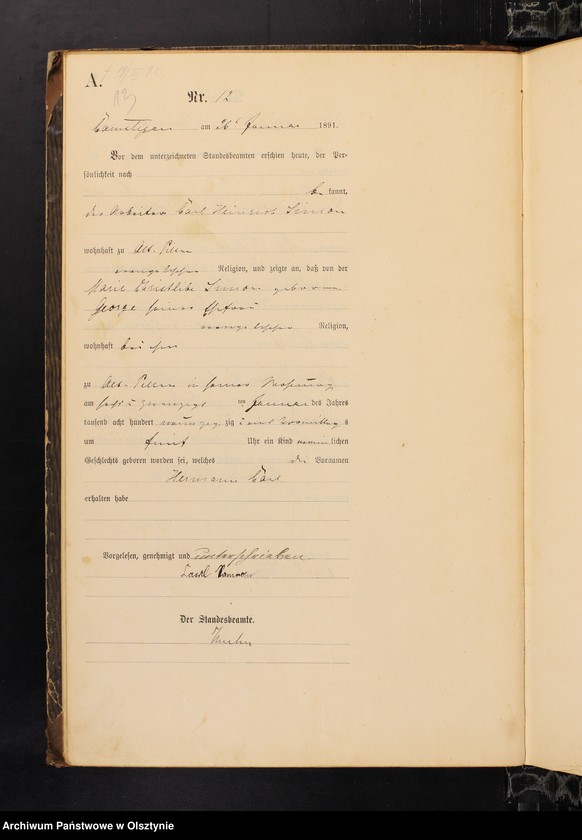 A.
Nr. 12
am 26ten Januar 1891.
Vor dem unterzeichneten Standesbeamten erschien heute, der Per-
sönlichkeit nach
be kannt,
der Arbeiter Carl Heinrich Simon
wohnhaft zu Alt-
evangelischer Religion, und zeigte an, daß von der
Marie Simon geborene
George seiner Ehefrau
evangelischer Religion,
wohnhaft bei ihm
zu Alt- in seiner Wohnung
am sechs und zwanzigsten Januar des Jahres
tausend acht hundert neunzig zig und Vormittag s
um fünf Uhr ein Kind männ lichen
Geschlechts geboren worden sei, welches die Vornamen
Hermann Carl
erhalten habe
Vorgelesen, genehmigt und unterschrieben
Carl Simon
Der Standesbeamte.
Archiwum Państwowe w Olsztynie